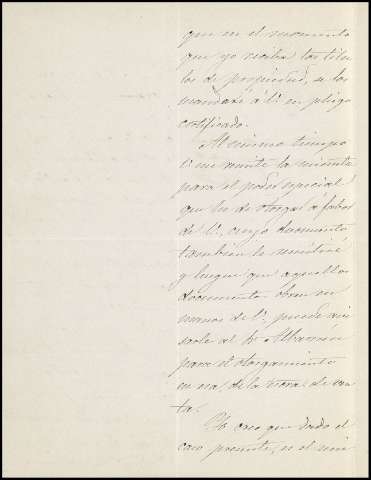 que en el momento
que yo reciba los títu-
los de propiedad, se los
mandaré á V. en pliego
certificado.
Al mismo tiempo
V. me remite la minuta
para el poder especial
que he de otorgar á fabor
de V., cuyo documento
tambien le remitiré
y luego que aquellos
documentos obren en
manos de V. puede avi
sarle al Sr. Albarrán
para el otorgamiento
en esa, de la escra. de ven
ta.
Yo creo que dado el
caso presente, es el